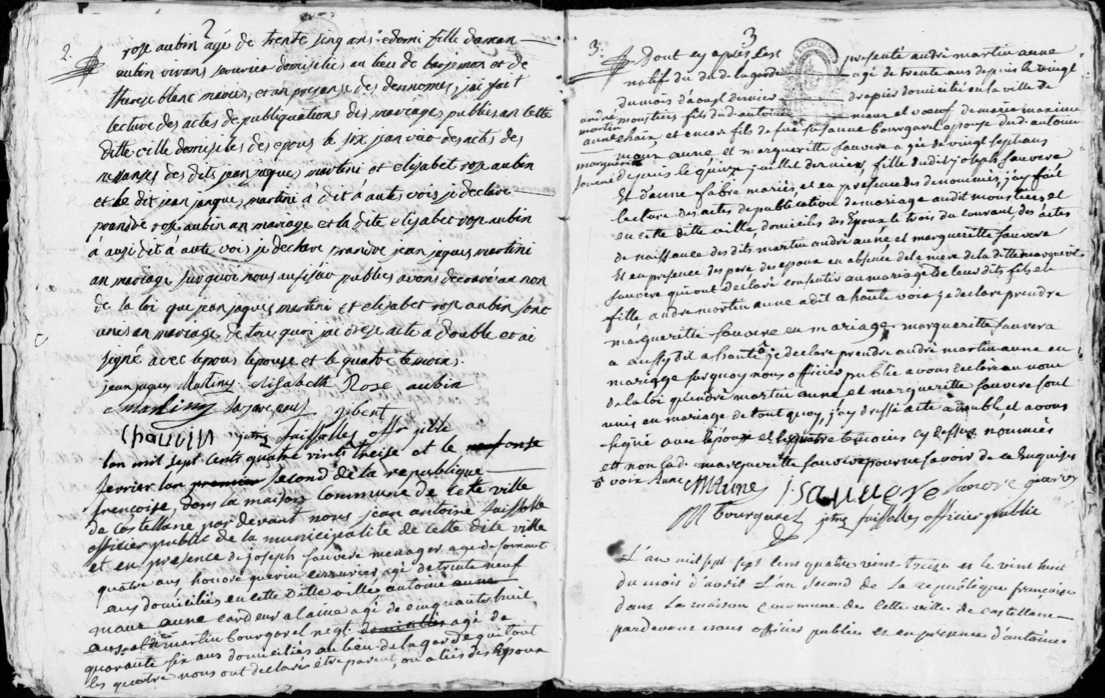 2
2.
rose aubin agé de trente sinq ans edemi fille daman
aubin vivans serurier domisiliés au lieu de barjemon et de
therese blanc mariés, et an presanse des dennomés, j'ai fait
lecture des actes de publiquations des mariages publies an cette
ditte ville domisiles des epous le six jean vié des actes des
nessanses des dits jean jaques martini et elisabet rose aubin
et le dit jean jaques martini à dit à aute vois je declare
prandre rose aubin an mariage et la dite elisabet rose aubin
à ausi dit à aute vois je declare prandre jean jaques martini
an mariage surquoi nous aufisier publies avons declaré au non
de la loi que jean jaques martini et elisabet rose aubin sont
unis an mariage de tout quoi jai dressé acte a double et ai
signé avec lepous lepouse et le quatre temoins.
jean jaques Martiny elisabeth Rose aubin
Martiny gibert
Chauvin faissolle off. public
lan mil sept cents quatre vints treise et le
fevrier lan premier second de la republique
françoise, dans la maison commune de cete ville
de castellane par devant nous jean antoine faissolle
officier public de la municipalité de cette dite ville
et en presence de joseph sauvere menager agé de soixante
quatre ans honoré guerin cerrurier agé de trente neuf
ans domiciliés en cette ditte ville antoine anne
maur anne cardeur a laine agé de cinquante huit
ans martin bourgarel negt. domiciliés agé de
quarante six ans domiciliés au lieu de la garde qui tout
les quatre nous ont declarés être parent ou aliés des epoux
3
3.
Dont cy apres s'est presenté andré martin anne
natif du dit lagarde agé de trente ans depuis le vingt
du mois d'aoust dernier drapier domicilié en la ville de
moustiers fils du dit antoine maur et voeuf de marie maxime
andré
martin
anne
et
marguerite
sauvere
chaix, et encore fils de feue susanne bourgarel epouse du dit antoine
maur anne et marguerite sauvere agée de vingt sept ans
depuis le quinze juillet dernier, fille du dit joseph sauvere
et d'anne fabre mariés, et en presence des denommés, j'ay fait
lecture des actes de publication de mariage au dit moustiers et
en cette ditte ville, domiciles des epoux le trois du courant des actes
de naissance des dits martin andré anne et marguerite sauvere
et en presence des pere des epoux en absence de la mere de la ditte marguerite
sauvere qui ont declaré consentir au mariage de leurs dits fils et
fille andré martin anne a dit a haute voix je declare prendre
marguerite sauvere en mariage, marguerite sauvere
a aussy dit a haute je declare prendre andré martin anne en
mariage surquoy nous officier public avons declaré au nom
de la loi qu'andré martin anne et marguerite sauvere sont
unis en mariage de tout quoy, j'ay dressé acte à double et avons
signé avec lepoux et les quatre temoins cy dessus nommés
et non la de marguerite sauvere pour ne savoir de ce enquise
Anne MAune j Sauvere guerin
M bourgarel faissolles officier public
L'an mil sept sept cens quatre vint treize et le vint huit
du mois d'avril L'an second de la republique française
dans la maison commune de cette ville de castellane
pardevant nous officier public et en presence d'antoine